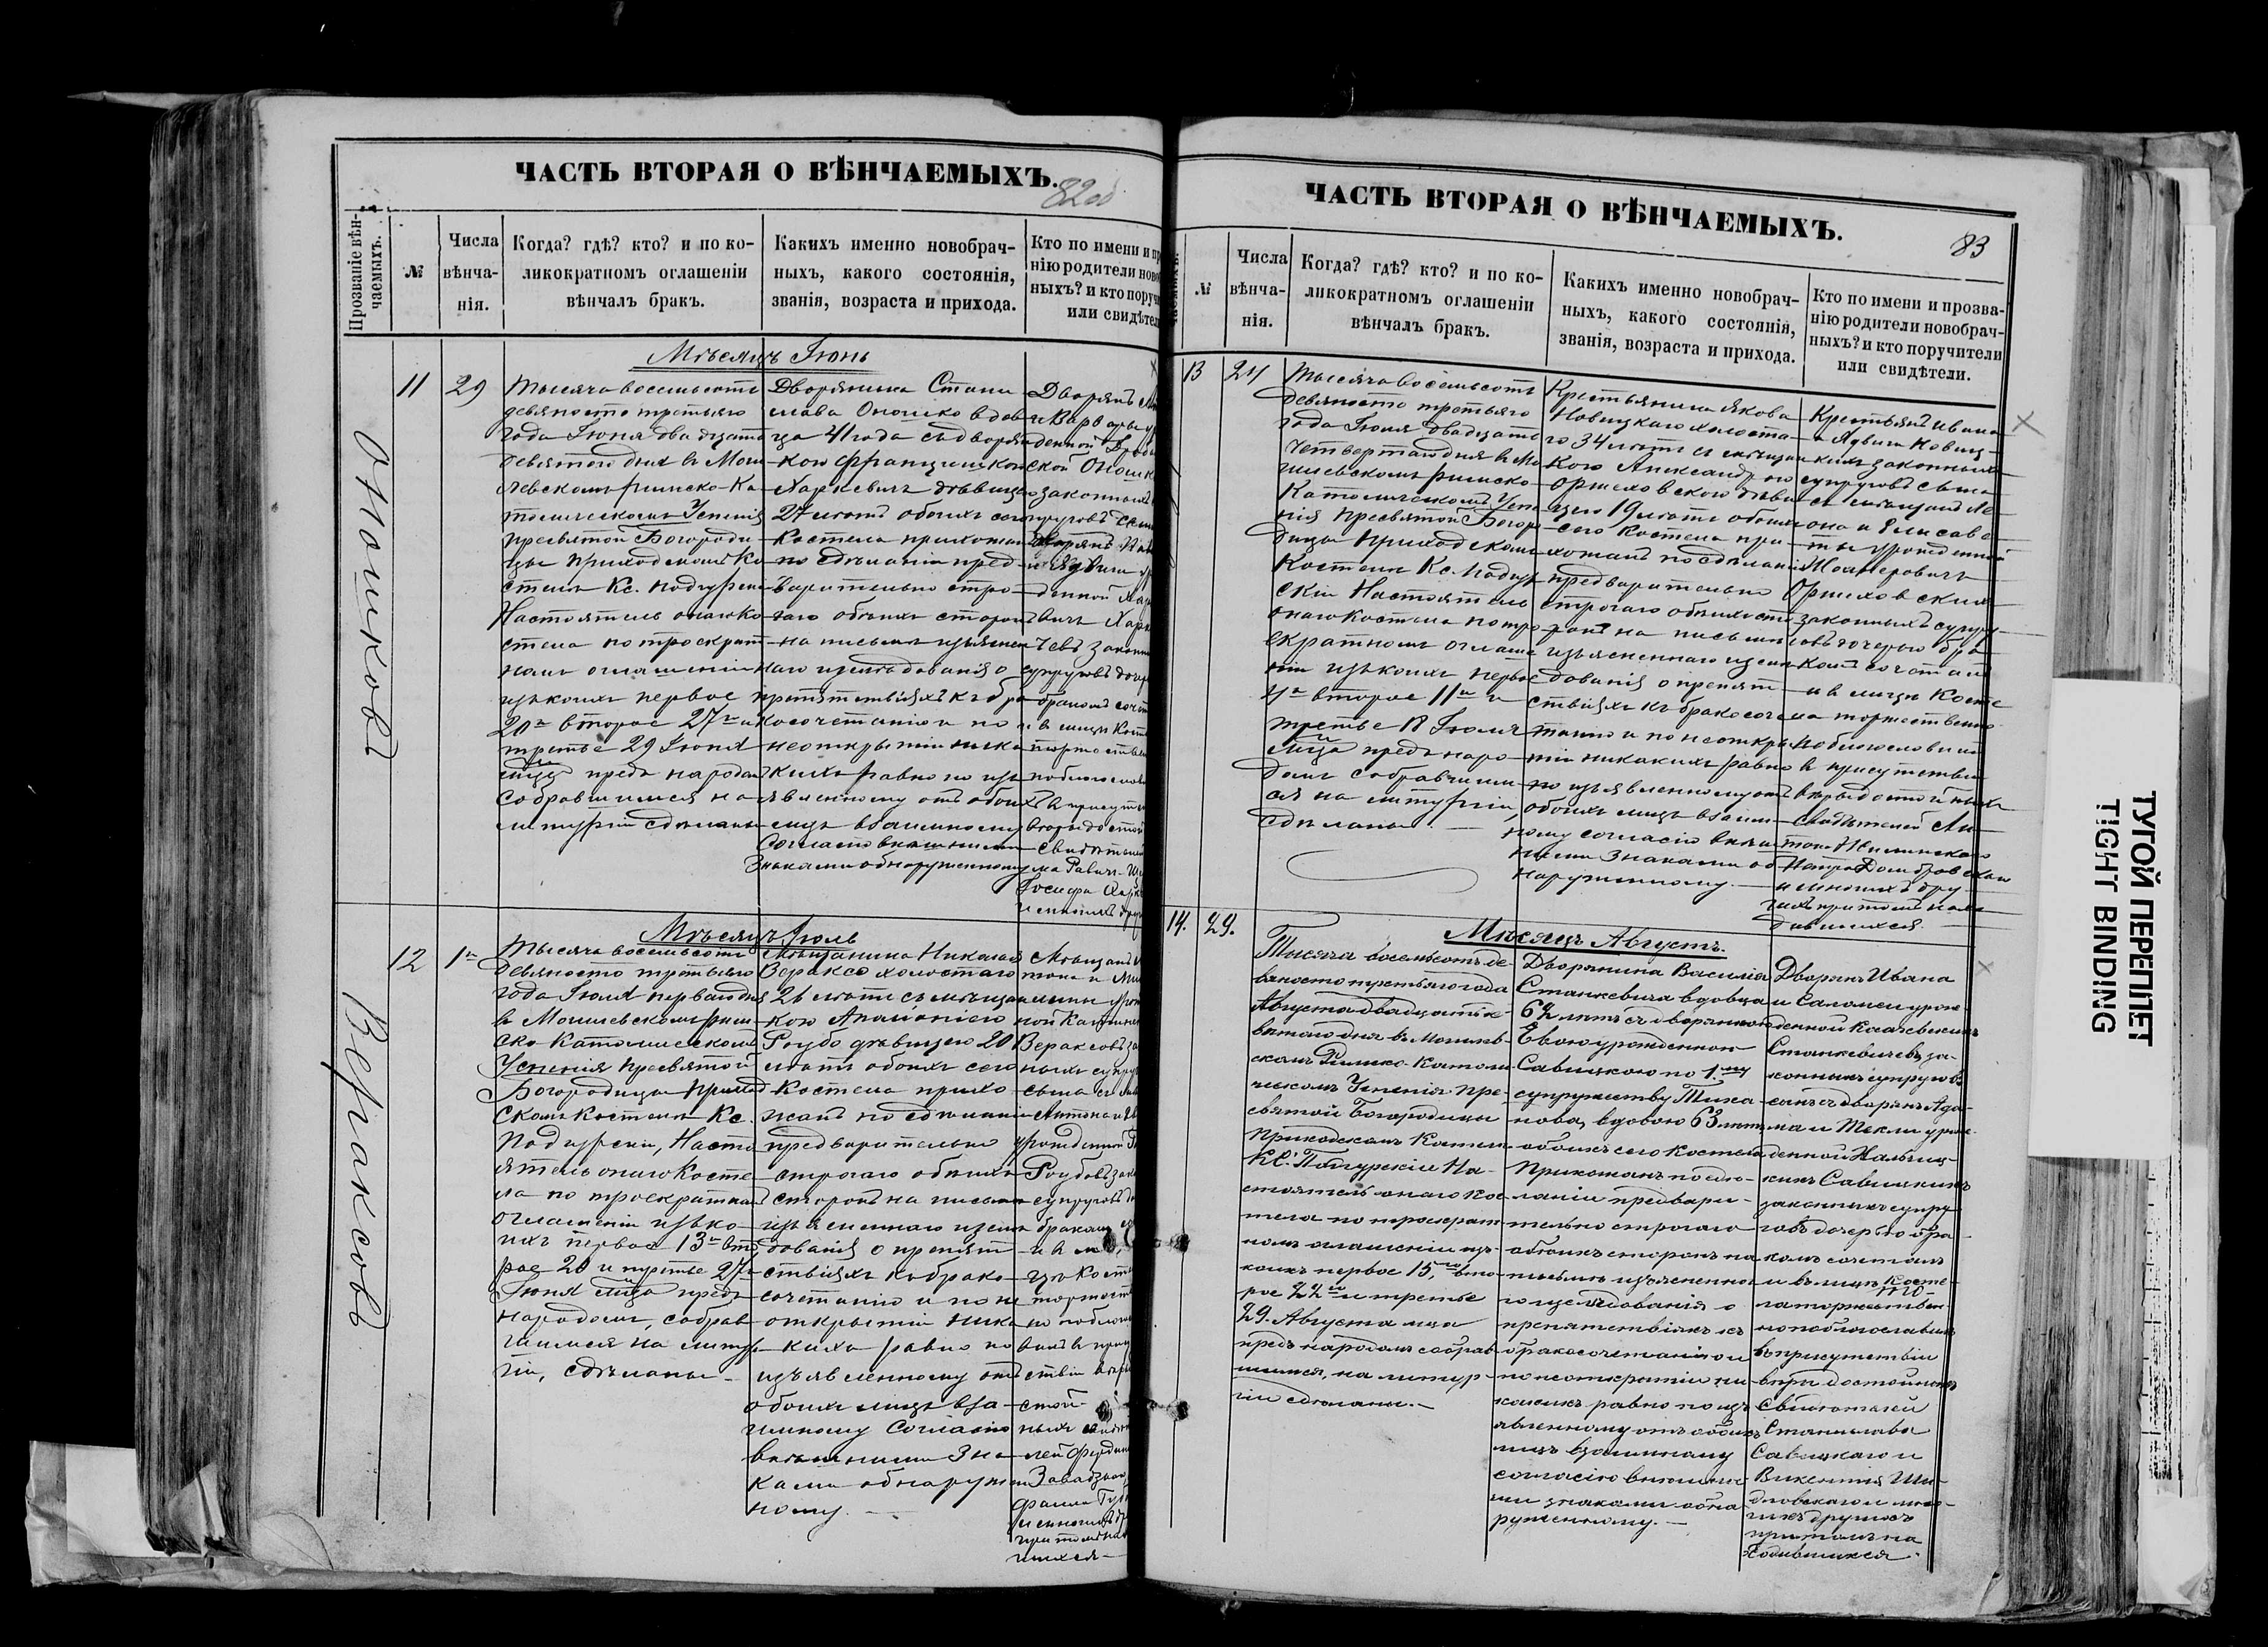 ЧАСТЬ ВТОРАЯ О ВѢНЧАЕМЫХЪ.
82об
Прозваніе вѣн-
чаемыхъ.
№
Числа
вѣнча-
нія.
Когда? гдѣ? кто? и по ко-
ликократномъ оглашеніи
вѣнчалъ бракъ.
Какихъ именно новобрач-
ныхъ, какого состоянія,
званія, возраста и прихода.
Кто по имени и пр
нію родители новоб
ныхъ? и кто поручи
или свидѣтел
Мѣсяцъ Іюнь
11
29
Тысяча восемьсотъ
девяносто третьяго
года Іюня двадцать
девятого дня въ Моги
левскомъ римско-Ка
толическомъ Успенія
Пресвятой Богороди
цы приходскомъ Ко
стелѣ Кс. Подгурскій
Настоятель онаго Ко
стела по троекрат
номъ оглашеніи
изъ коихъ первое
20го второе 27го и
третье 29 Іюня
м-ца предъ народом
собравшимся на
литургіи сдѣланы
Дворянина Стани
слава Оношко вдов
ца 41 года съ дворян
кою Францишкою
Харкевичъ дѣвицею
27 лѣтъ обоихъ сего
Костела прихожан
по сдѣланіи пред
варительно стро
гаго обѣихъ сторон
на письмѣ изъяснен
наго изслѣдованія о
препятствіяхъ къ бра
косочетанію и по
неоткрытіи ника
кихъ равно по изъ
явленному отъ обоихъ
лицъ взаимному
Согласію внѣшними
Знаками обнаруженному
Дворянъ
и Варвары у
денной
ской Онош
законныхъ
супруговъ сына
дворянъ
и Ядвиги ур
денной
вичъ Харк
чевъ законн
супруговъ доч
бракомъ сочет
и въ лицѣ Кост
торжествен
поблагослов
въ присут
вѣры достой
свидѣтелей
Іосифа Харк
и многихъ друг
Оношковъ
12
1го
Мѣсяцъ Іюль
Тысяча восемьсотъ
девяносто третьяго
года Іюля перваго дня
въ Могилевскомъ рим
ско Католическомъ
Успенія Пресвятой
Богородицы приход
скомъ Костелѣ Кс.
Подгурскій, Насто
ятель онаго Косте
ла по троекратном
оглашеніи изъ ко
ихъ первое 13го вто
рое 20 и третье 27го
Іюня м-ца предъ
народомъ, собрав
шимся на литур
гіи, сдѣланы
Мѣщанина Николая
Вераксо холостаго
26 лѣтъ съ мѣщан
кою Аполоніею
Роубо дѣвицею 20
лѣтъ обоихъ сего
Костела прихо
жанъ по сдѣланіи
предварительно
строгаго обѣихъ
сторонъ на письмѣ
изъясненнаго изслѣ
дованія о препят
ствіяхъ къ брако
сочетанію и по не
открытіи ника
кихъ равно по
изъявленному отъ
обоихъ лицъ вза
имному согласію
внѣшними Зна
ками обнаружен
ному. —
Мѣщанъ
тона и
урож
ной
Вераксовъ за
ныхъ супру
сына съ мѣщ
Антона и
урожденной
Роубовъ зак
супруговъ д
бракомъ
и въ ли
цѣ Косте
торжеств
но поблаго
вилъ въ прису
ствіи вѣры
стой
ныхъ свидѣт
лей Ферди
Завадз
и многихъ др
при томъ нах
шихся —
Вераксовъ
ЧАСТЬ ВТОРАЯ О ВѢНЧАЕМЫХЪ.
83
чаемыхъ.
№
Числа
вѣнча-
нія.
Когда? гдѣ? кто? и по ко-
ликократномъ оглашеніи
вѣнчалъ бракъ.
Какихъ именно новобрач-
ныхъ, какого состоянія,
званія, возраста и прихода.
Кто по имени и прозва-
нію родители новобрач-
ныхъ? и кто поручители
или свидѣтели.
13
24
Тысяча восемьсотъ
девяносто третьяго
года Іюля двадцать
четвертаго дня въ Мо
гилевскомъ римско
Католическомъ Успе
нія Пресвятой Богоро
дицы приходскомъ
Костелѣ Кс. Подгур
скій Настоятель
онаго Костела по тро
екратномъ оглаше
ніи изъ коихъ первое
4го второе 11го и
третье 18 Іюля
м-ца предъ наро
домъ собравшим
ся на литургіи,
сдѣланы. —
Крестьянина Якова
Новицкаго холоста
го 34 лѣтъ съ мѣщан
кою Александрою
Оржеховскою дѣви
цею 19 лѣтъ обоихъ
сего Костела при
хожанъ по сдѣланіи
предварительно
строгаго обѣихъ сто
ронъ на письмѣ
изъясненнаго изслѣ
дованія о препят
ствіяхъ къ бракосоче
танію и по неоткры
тіи никакихъ равно
по изъявленному отъ
обоихъ лицъ взаим
ному согласію внѣш
ними Знаками об
наруженному. —
Крестьянъ Ивана
и Ядвиги Новиц
кихъ законныхъ
супруговъ сына
съ мѣщанъ Ле
она и Елисаве
ты урожденной
Оржеховских
законныхъ супру
говъ дочерью бра
комъ сочеталъ
и въ лицѣ Косте
ла торжественно
поблагословилъ
въ присутствіи
вѣры достойныхъ
свидѣтелей Ан
тона
Петра Домбровскаго
и многихъ дру
гихъ при томъ нахо
дившихся.
14.
29.
Мѣсяцъ Августъ.
Тысяча восемьсотъ де-
вяносто третьяго года
Августа двадцать де-
вятаго дня въ Могилев-
скомъ Римско-Католи-
ческомъ Успенія Пре-
святой Богородицы
Приходскомъ Костелѣ
Кс. Подгурскій На-
стоятель онаго Кос-
тела по троекрат-
номъ оглашеніи изъ
коихъ первое 15го, вто-
рое 22го и третье
29. Августа м-ца
предъ народомъ собрав-
шимся, на литур-
гіи сдѣланы. —
Дворянина Василія
Станкевича вдовца
62 лѣтъ съ дворянкою
Евою урожденною
Савицкою по 1му
супружеству Тиха
нова, вдовою 63 лѣтъ
обоихъ сего Костела
Прихожанъ по сдѣ-
ланіи предвари-
тельно строгаго
обоихъ сторонъ на
письмѣ изъясненна
го изслѣдованія о
препятствіяхъ къ
бракосочетанію и
по неоткрытіи ни
какихъ равно по изъ
явленному отъ обоихъ
лицъ взаимному
согласію внѣшни
ми знаками обна
руженному. —
Дворянъ Ивана
и Саломеи урож-
денной
Станкевичевъ за-
конныхъ супруговъ
сынъ съ дворянъ Ада-
ма и Текли урож-
денной
кихъ Савицкихъ
законныхъ супру
говъ дочерью бра
комъ сочеталъ
и въ лицѣ Косте-
ла торжествен-
но поблагословилъ
въ присутствіи
вѣры достойныхъ
Свидѣтелей
Станислава
Савицкаго и
Викентія Ши-
дловскаго и мно-
гихъ другихъ
при томъ на
ходившихся.
ТУГОЙ ПЕРЕПЛЕТ
TIGHT BINDING